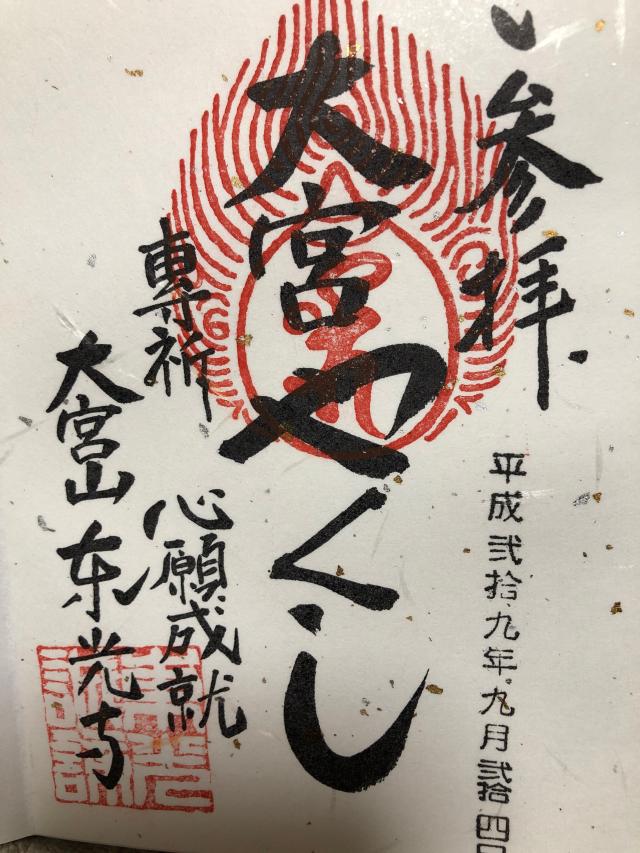 参拝
平成弐拾九年九月弐拾四日
大宮やくし
專祈
心願成就
大宮山東光寺